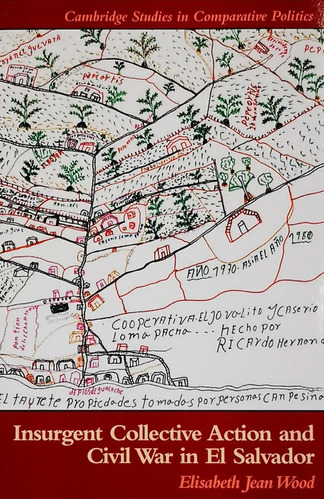 Cambridge Studies in Comparative Politics
AÑO 1970. ASIA EL AÑO 1980
COOPERATIVA. EL JOVALITO Y CASERIO
LOMA PACHA... HECHO POR
RICARDO HERNAN
EL TAURETE PROPIEDADES TOMADOS POR PERSONAS CAMPESINA
Insurgent Collective Action and
Civil War in El Salvador
Elisabeth Jean Wood